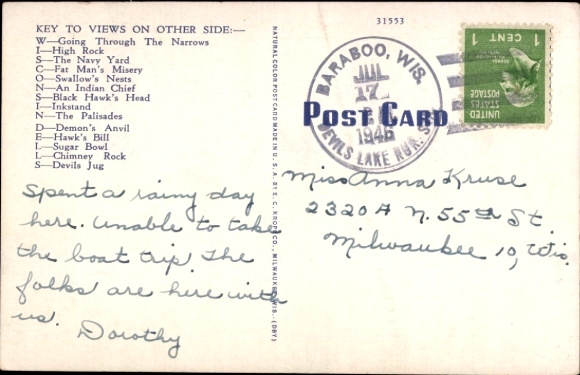 KEY TO VIEWS ON OTHER SIDE:—
W—Going Through The Narrows
I—High Rock
S—The Navy Yard
C—Fat Man's Misery
O—Swallow's Nests
N—An Indian Chief
S—Black Hawk's Head
I—Inkstand
N—The Palisades
D—Demon's Anvil
E—Hawk's Bill
L—Sugar Bowl
L—Chimney Rock
S—Devils Jug
Spent a rainy day
here. Unable to take
the boat trip. The
folks are here with
us.
Dorothy
NATURAL COLOR POST CARD MADE IN U. S. A. BY E. C. KROPP CO., MILWAUKEE, WIS. (DBY)
31553
POST CARD
BARABOO, WIS.
JUL
17
1946
DEVILS LAKE RUR. STA.
UNITED
STATES
POSTAGE
1 CENT 1
Miss Anna Kruse
2320A N. 55th St.
Milwaukee 10, Wis.